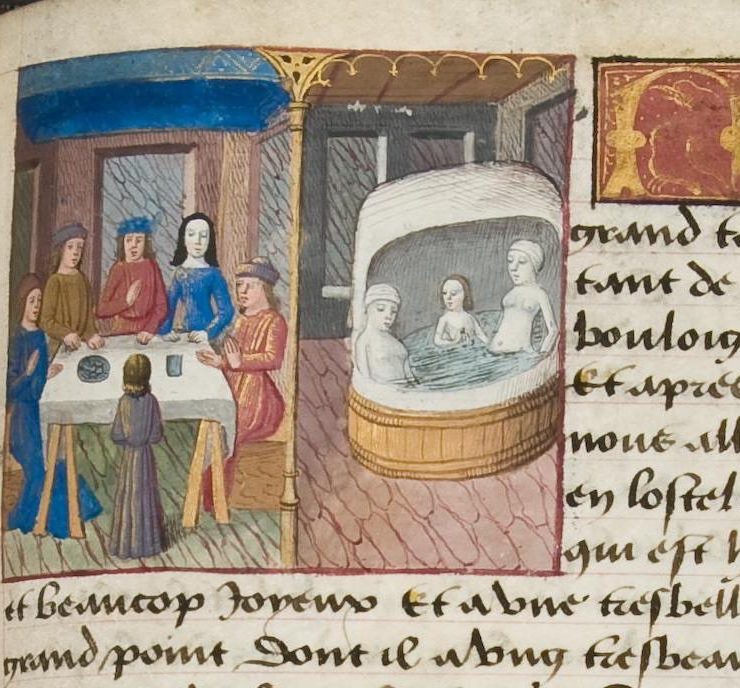 grand
tant de
bouloig
Et apres
nous all
en lostel
qui est
et beaucop Joyeux Et a vne tresbell
grand point Dont il a vng tresbeau